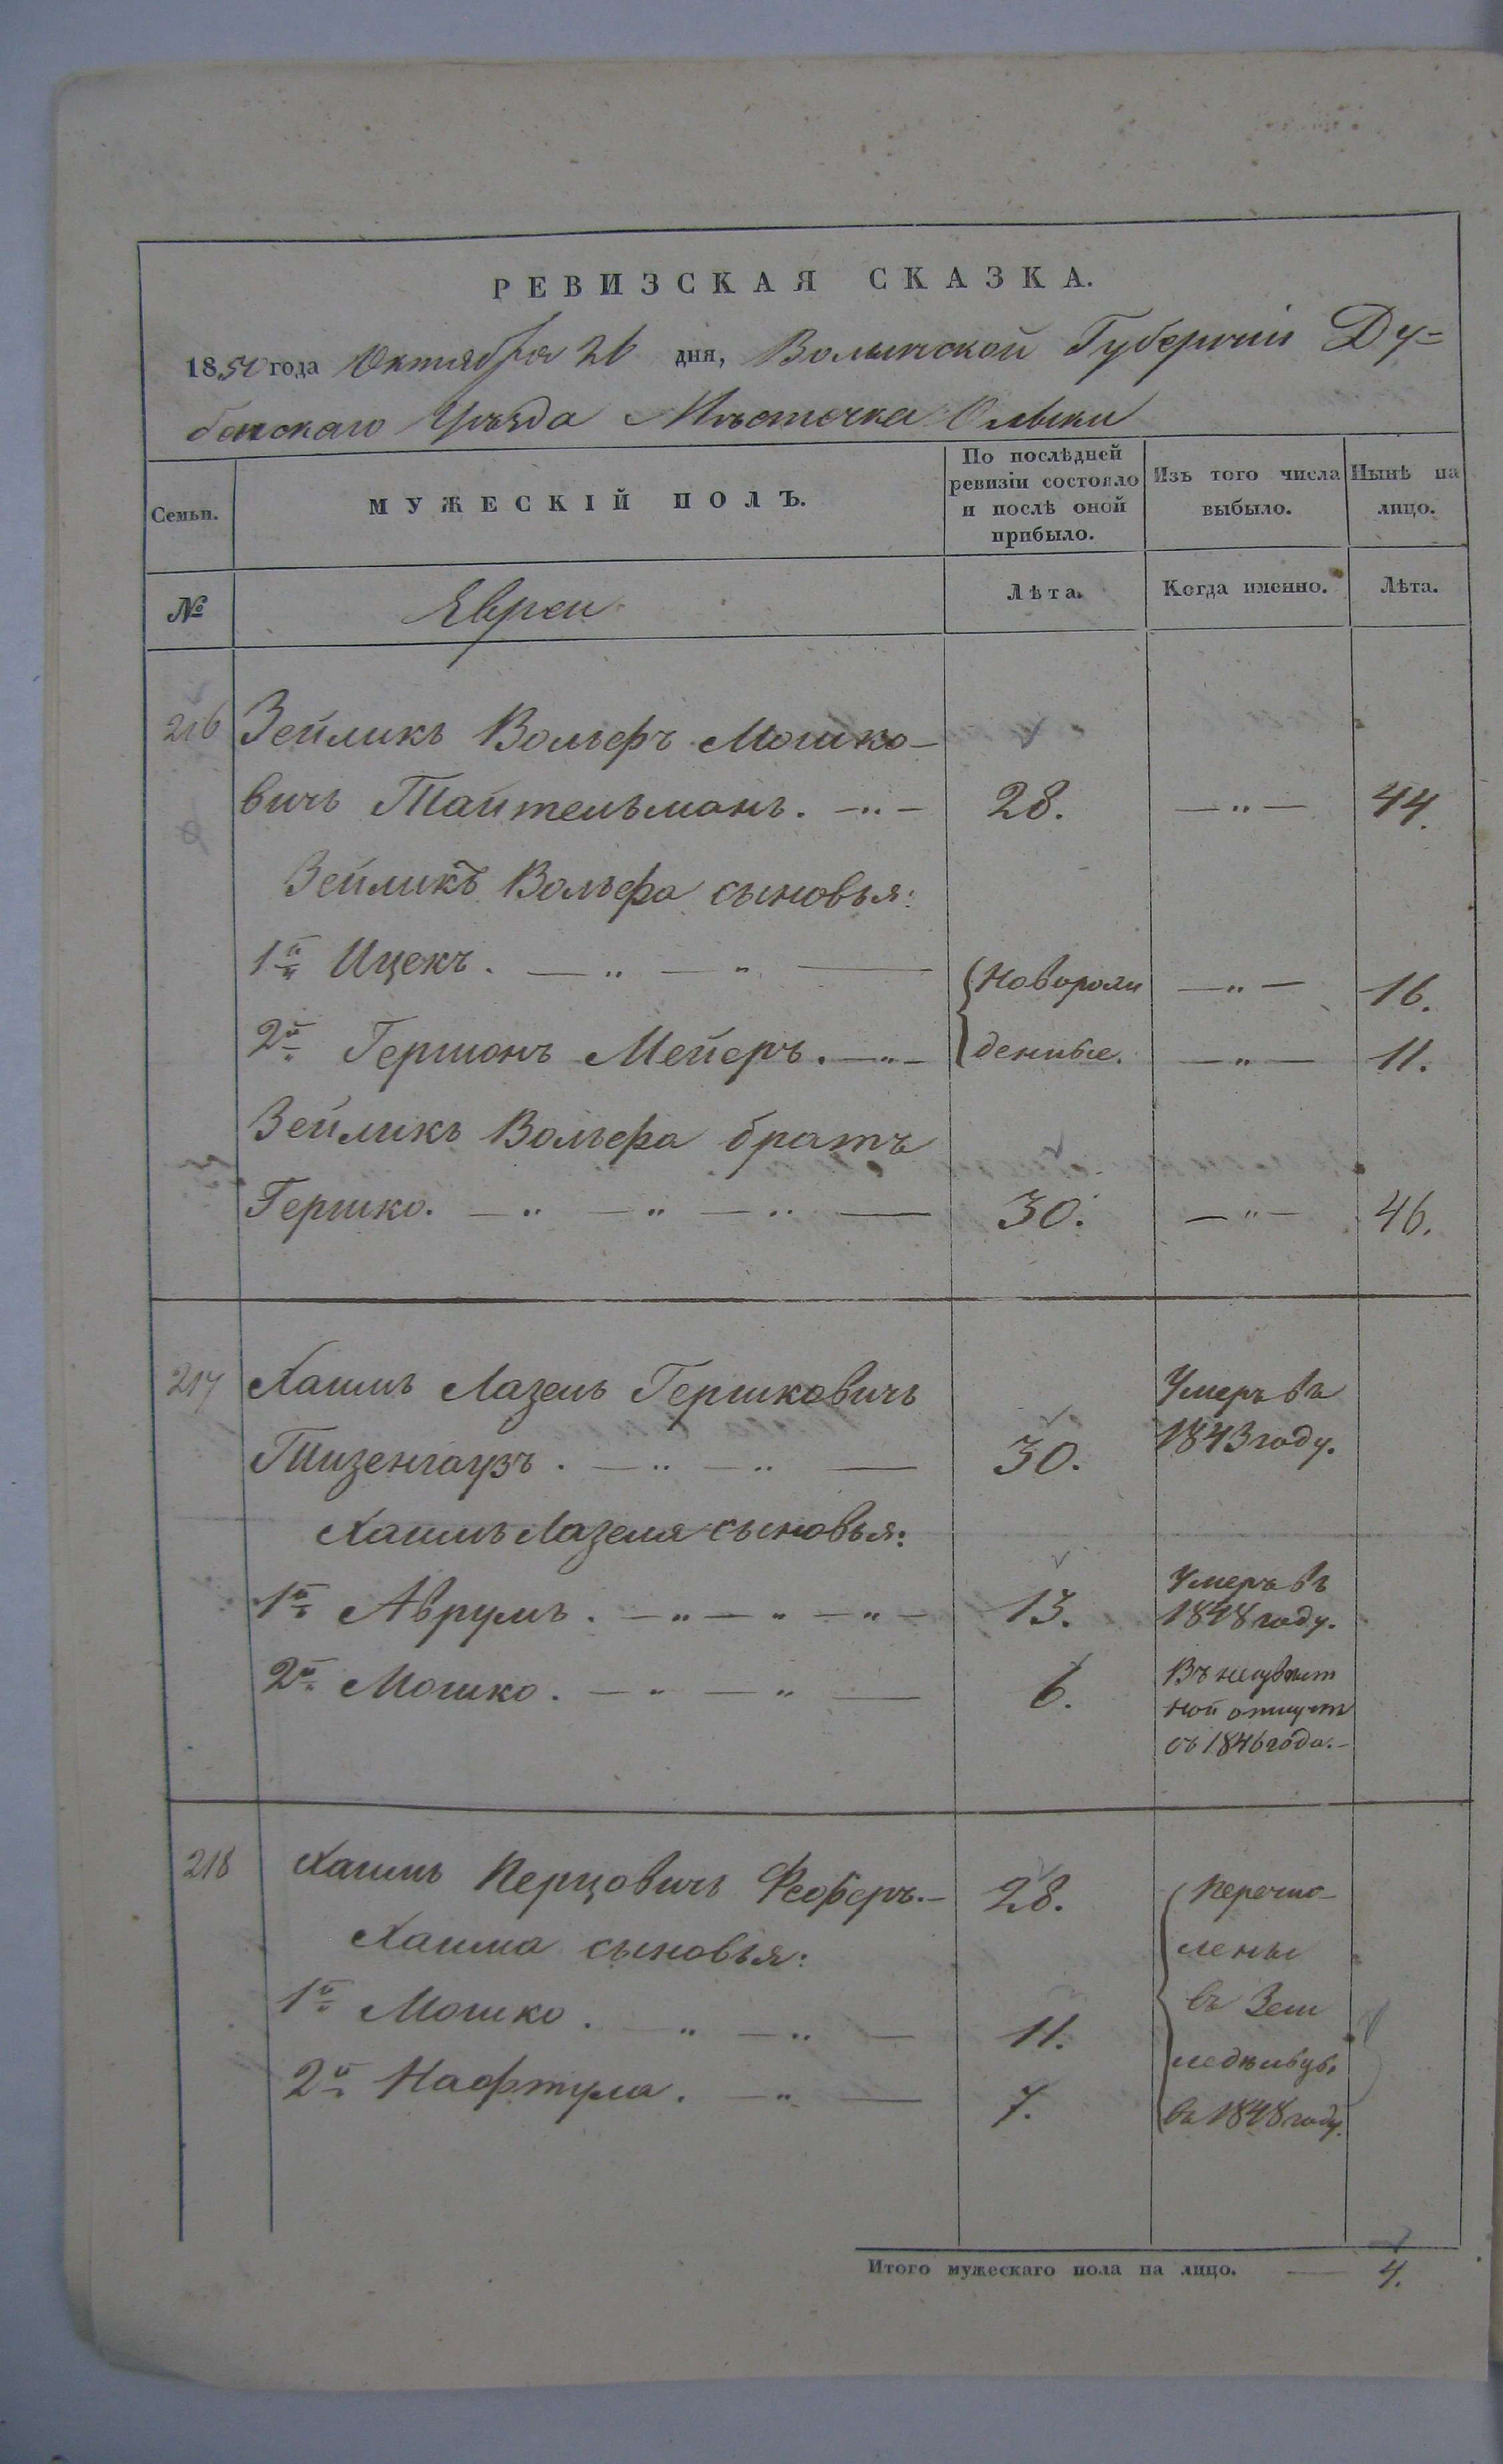 РЕВИЗСКАЯ СКАЗКА.
1850 года Октября 26 дня, Волынской Губерніи Ду=
бенскаго Уѣзда Мѣстечка Олыки
Семьи.
МУЖЕСКІЙ ПОЛЪ.
По послѣдней ревизіи состояло и послѣ оной прибыло.
Изъ того числа выбыло.
Нынѣ на лицо.
№
Евреи
Лѣта.
Когда именно.
Лѣта.
216 Зейликъ Вольфъ Мошко-
вичъ Тайтельманъ. 28. 44.
Зейликъ Вольфа сыновья:
1й Ицекъ. Новорож 16.
2й Гершонъ Мейеръ. денные. 11.
Зейликъ Вольфа братъ
Гершко. 30. 46.
217 Хаимъ Лазель Гершковичъ Умеръ въ
Тизенгаузъ. 30. 1843 году.
Хаимъ Лазеля сыновья:
1й Аврумъ. 13. Умеръ въ
1848 году.
2й Мошко. 6. Въ неизвѣст
ной отлучт
съ 1846 года.
218 Хаимъ Перцовичъ Фефферъ. 28. Перечис-
Хаима сыновья: лены
1й Мошко. 11. въ Зем
2й Нафтула. 7. ледѣльцы
въ 1848 году.
Итого мужескаго пола на лицо. 4.